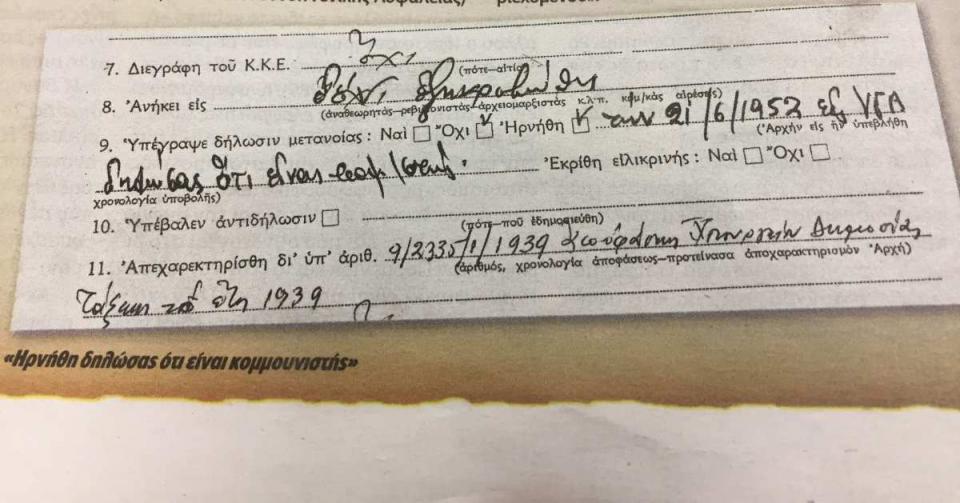 7. Διεγράφη τοῦ Κ.Κ.Ε. Ὄχι
(πότε—αἰτία)
8. Ἀνήκει εἰς
(ἀναθεωρητάς—ρεβιζιονιστάς—ἀρχειομαρξιστάς κ.λ.π. κομ/κάς αἱρέσεις)
9. Ὑπέγραψε δήλωσιν μετανοίας : Ναὶ ☐ Ὄχι ☑ Ἠρνήθη ☑ την 21/6/1952 εἰς ΥΓΑ
(Ἀρχὴν εἰς ἣν ὑπεβλήθη
δηλώσας ὅτι εἶναι κομ/στής. Ἐκρίθη εἰλικρινής : Ναὶ ☐ Ὄχι ☐
χρονολογία ὑποβολῆς)
10. Ὑπέβαλεν ἀντιδήλωσιν ☐
(πότε—ποῦ ἐδημοσιεύθη)
11. Ἀπεχαρεκτηρίσθη δι' ὑπ' ἀριθ. 9/2335/1/1939 ἀπόφασης Ὑπουργείου Δημοσίας
(ἀριθμός, χρονολογία ἀποφάσεως—προτείνασα ἀποχαρακτηρισμὸν Ἀρχή)
Τάξεως 1939
«Ηρνήθη δηλώσας ότι είναι κομμουνιστής»